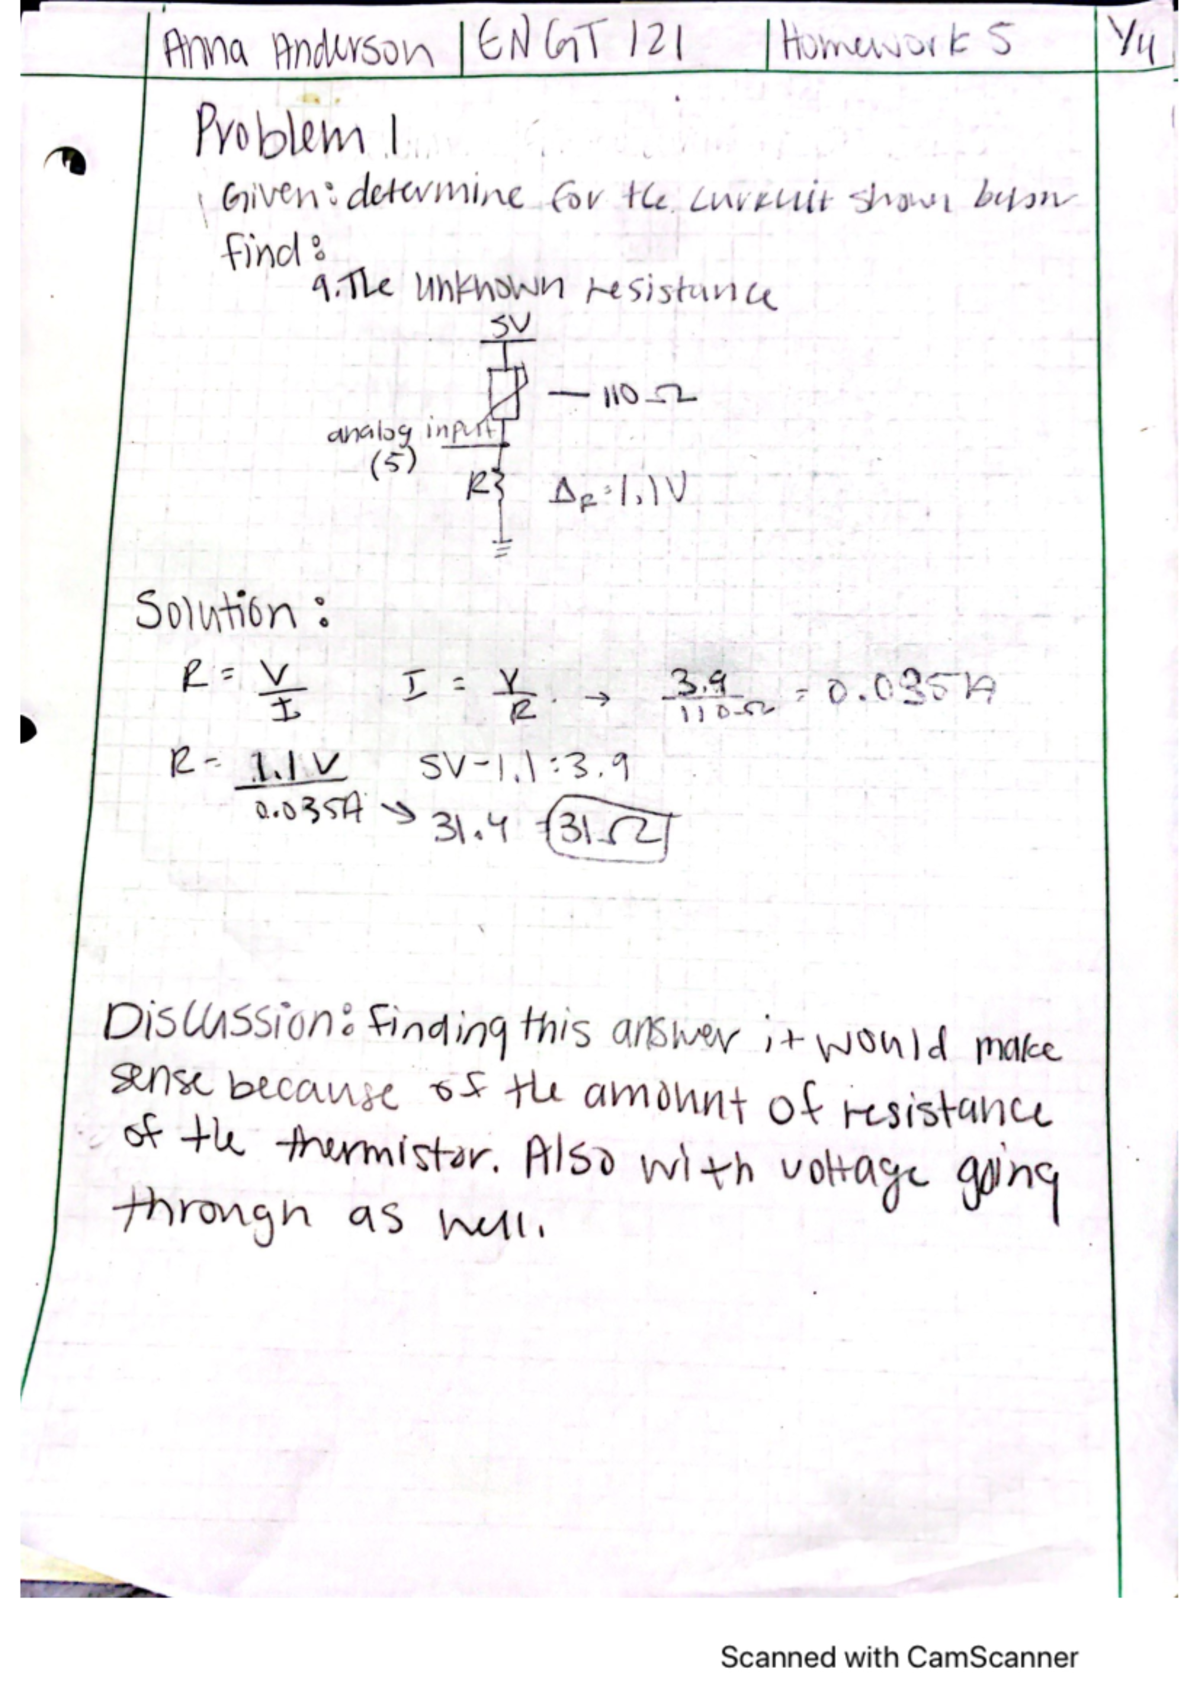 Anna Anderson | ENGT 121 | Homework 5 1/4
Problem 1
Given: determine for the curcuit shown below
find:
a. The unknown resistance
5V
— 110 Ω
analog input
(5)
R ΔR = 1.1V
Solution:
R = V/I I = V/R → 3.9/110Ω = 0.035A
R = 1.1V/0.035A 5V-1.1 = 3.9
→ 31.4 = 31Ω
Discussion: finding this answer it would make
sense because of the amount of resistance
of the thermistor. Also with voltage going
through as well.
Scanned with CamScanner